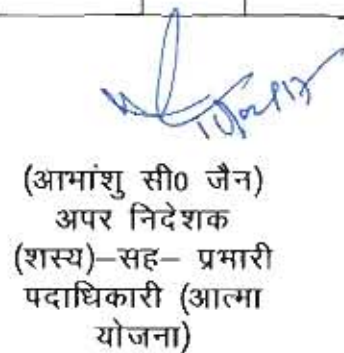 (आभांशु सी0 जैन)
अपर निदेशक
(शस्य)–सह– प्रभारी
पदाधिकारी (आत्मा
योजना)